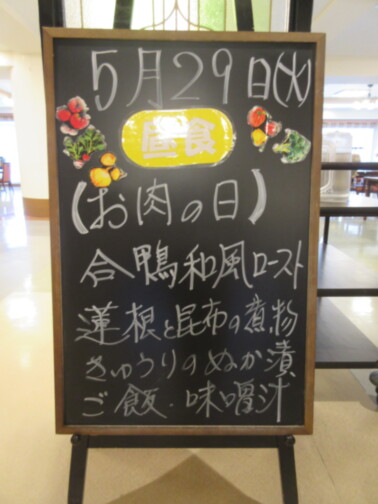 5月29日(火)
昼食
(お肉の日)
合鴨和風ロースト
蓮根と昆布の煮物
きゅうりのぬか漬
ご飯・味噌汁